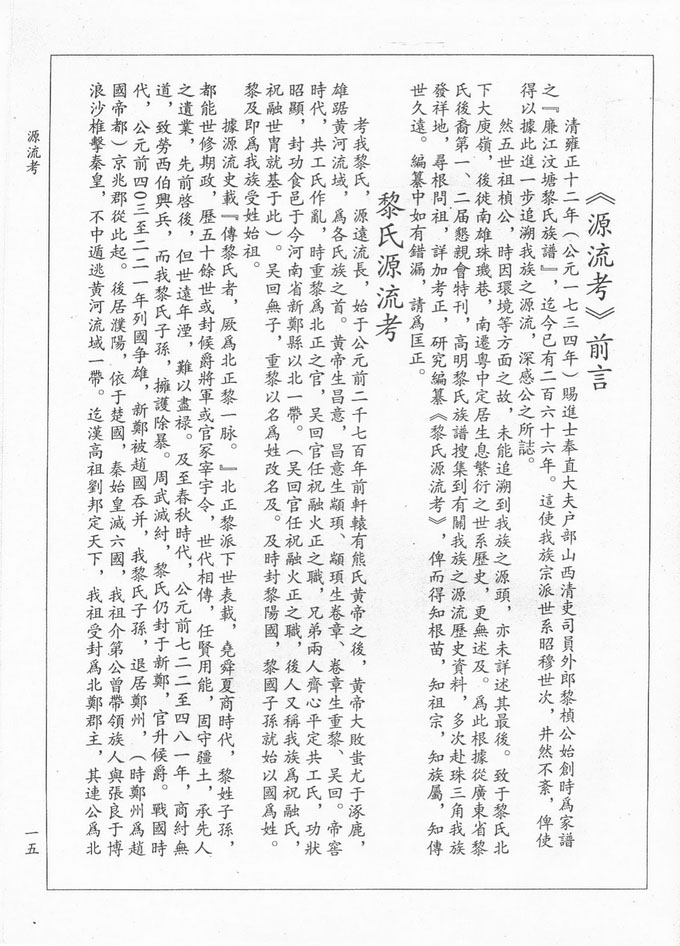 《源流考》前言
清雍正十二年（公元一七三四年）賜進士奉直大夫户部山西清吏司員外郎黎楨公始創時爲家譜
之『廉江汶塘黎氏族譜』，迄今已有二百六十六年。這使我族宗派世系昭穆世次，井然不紊，俾使
得以據此進一步追溯我族之源流，深感公之所誌。
然五世祖楨公，時因環境等方面之故，未能追溯到我族之源頭，亦未詳述其最後。致于黎氏北
下大庾嶺，後徙南雄珠璣巷，南遷粵中定居生息繁衍之世系歷史，更無述及。爲此根據從廣東省黎
氏後裔第一、二届懇親會特刊，高明黎氏族譜搜集到有關我族之源流歷史資料，多次赴珠三角我族
發祥地，尋根問祖，詳加考正，研究編纂《黎氏源流考》，俾而得知根苗，知祖宗，知族屬，知傳
世久遠。編纂中如有錯漏，請爲匡正。
黎氏源流考
考我黎氏，源遠流長，始于公元前二千七百年前軒轅有熊氏黄帝之後，黄帝大敗蚩尤于涿鹿，
雄踞黄河流域，爲各民族之首。黄帝生昌意，昌意生顓頊、顓頊生卷章、卷章生重黎、吴回。帝窖
時代，共工氏作亂，時重黎爲北正之官，吴回官任祝融火正之職，兄弟兩人齊心平定共工氏，功狀
昭顯，封功食邑于今河南省新鄭縣以北一帶。（吴回官任祝融火正之職，後人又稱我族爲祝融氏，
祝融世胄就基于此）。吴回無子，重黎以名爲姓改名及。及時封黎陽國，黎國子孫就始以國爲姓。
黎及即爲我族受姓始祖。
據源流史載『傳黎氏者，厥爲北正黎一脉。』北正黎派下世表載，堯舜夏商時代，黎姓子孫，
都能世修期政，歷五十餘世或封候爵將軍或官冢宰宇令，世代相傳，任賢用能，固守疆土，承先人
之遺業，先前啓後，但世遠年湮，難以盡禄。及至春秋時代，公元前七二二至四八一年，商紂無
道，致勞西伯興兵，而我黎氏子孫，擁護除暴。周武滅紂，黎氏仍封于新鄭，官升候爵。戰國時
代，公元前四〇三至二二一年列國争雄，新鄭被趙國吞并，我黎氏子孫，退居鄭州，（時鄭州爲趙
國帝都）京兆郡從此起。後居濮陽，依于楚國，秦始皇滅六國，我祖介第公曾帶領族人與張良于博
浪沙椎擊秦皇，不中遁逃黄河流域一帶。迄漢高祖劉邦定天下，我祖受封爲北鄭郡主，其連公爲北
源流考
一五